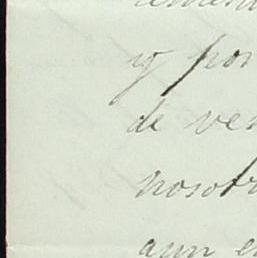 y por
de ve
nosotr
aun e